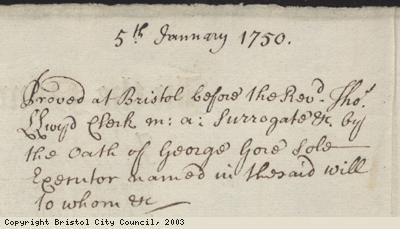 5th January 1750.
Proved at Bristol before the Revd. Thos.
Llwyd Clerk m: a: Surrogate &c by
the Oath of George Gore Sole
Executor named in the said will
to whom &c
Copyright Bristol City Council, 2003